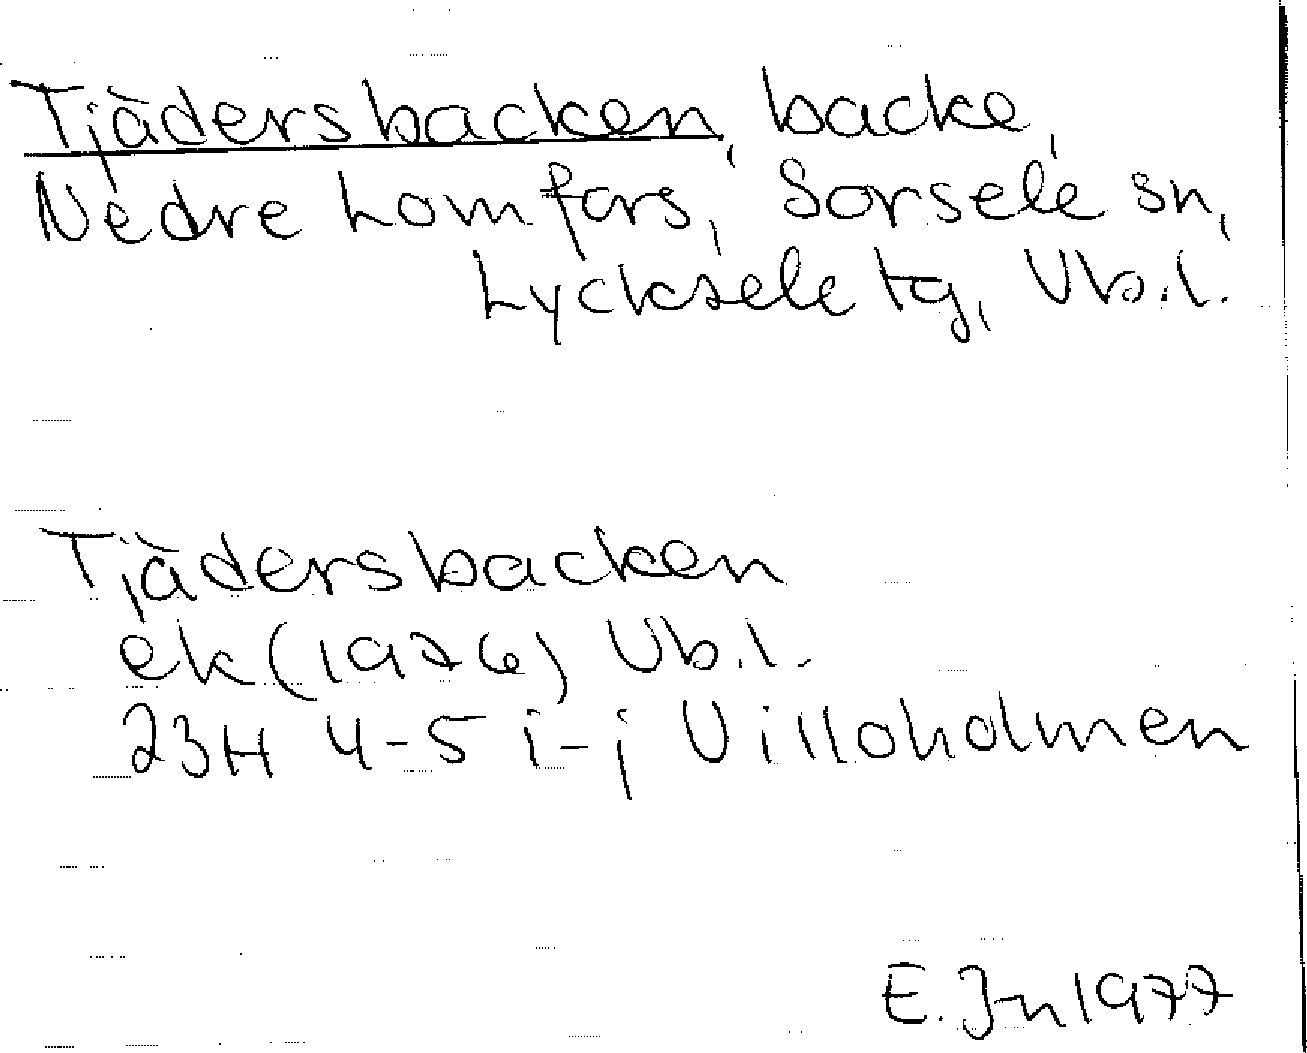 Tjädersbacken, backe,
Nedre Lomfors, Sorsele sn,
Lycksele tg, Vb.l.
Tjädersbacken
ek (1976) Vb.l.
23H 4-5 i-j Villoholmen
E. Jn 1977